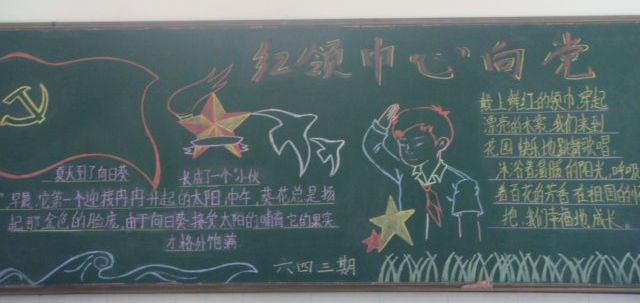 红领巾心向党
夏天到了向日葵 长成了一个"小伙
早晨,它第一个迎接冉冉升起的太阳,中午,葵花总是扬
起那金色的脸庞,由于向日葵接受太阳的哺育,它的果实
才格外饱满
戴上鲜红的领巾,穿起
漂亮的衣裳,我们来到
花园,快乐地跳舞歌唱
沐浴着温暖的阳光,呼吸
着百花的芳香,在祖国的
抱,我们幸福地成长。
六四三期